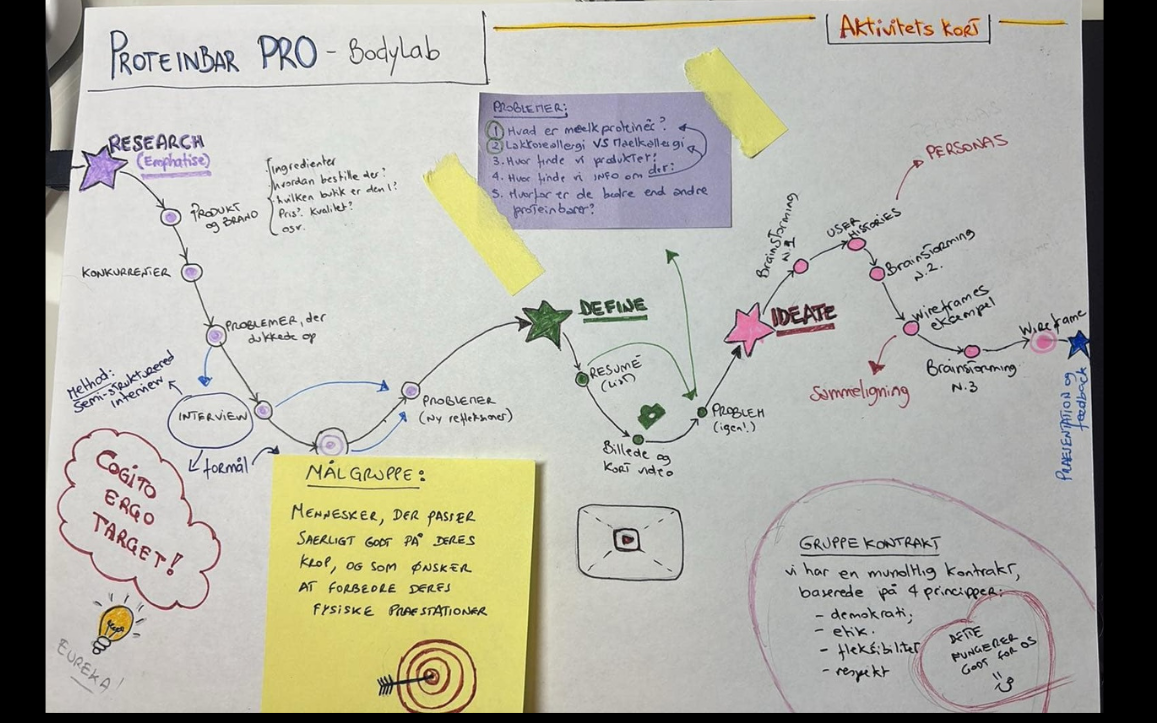 PROTEINBAR PRO - BodyLab
AKtivitets KORT
RESEARCH
(Emphatise)
PRODUKT
og BRAND
Ingredienter
hvordan bestille der?
hvilken butik er den i?
Pris? Kvalitet?
osv.
KONKURRENTER
PROBLEMER, der
dukkede op
Method:
Semi-strukturered
interview
INTERVIEW
formål
PROBLEMER
(Ny refleksioner)
COGITO
ERGO
TARGET!
EUREKA!
MÅLGRUPPE:
MENNESKER, DER PASSER
SAERLIGT GODT PÅ DERES
KROP, OG SOM ØNSKER
AT FORBEDRE DERES
FYSISKE PRAESTATIONER
PROBLEMER:
1 Hvad er maelkproteiner?
2 Laktoseallergi VS Maelkallergi
3. Hvor finde vi produktet?
4. Hvor finde vi INFO om der?
5. Hvorfor er de bedre end andre
proteinbarer?
DEFINE
RESUMÉ
Billede og
KORT video
PROBLEM
(igen!)
IDEATE
Brainstorming
N.1
USER
HISTORIES
PERSONAS
Brainstorming
N.2.
Wireframes
eksempel
Sammeligning
Brainstorming
N.3
Wireframe
PRAESENTATION og
feedback
GRUPPE KONTRAKT
vi har en mundtlig kontrakt,
baserede på 4 principper:
- demokrati;
- etik.
- fleksibilitet
- respekt
DETTE
FUNGERER
GODT FOR OS